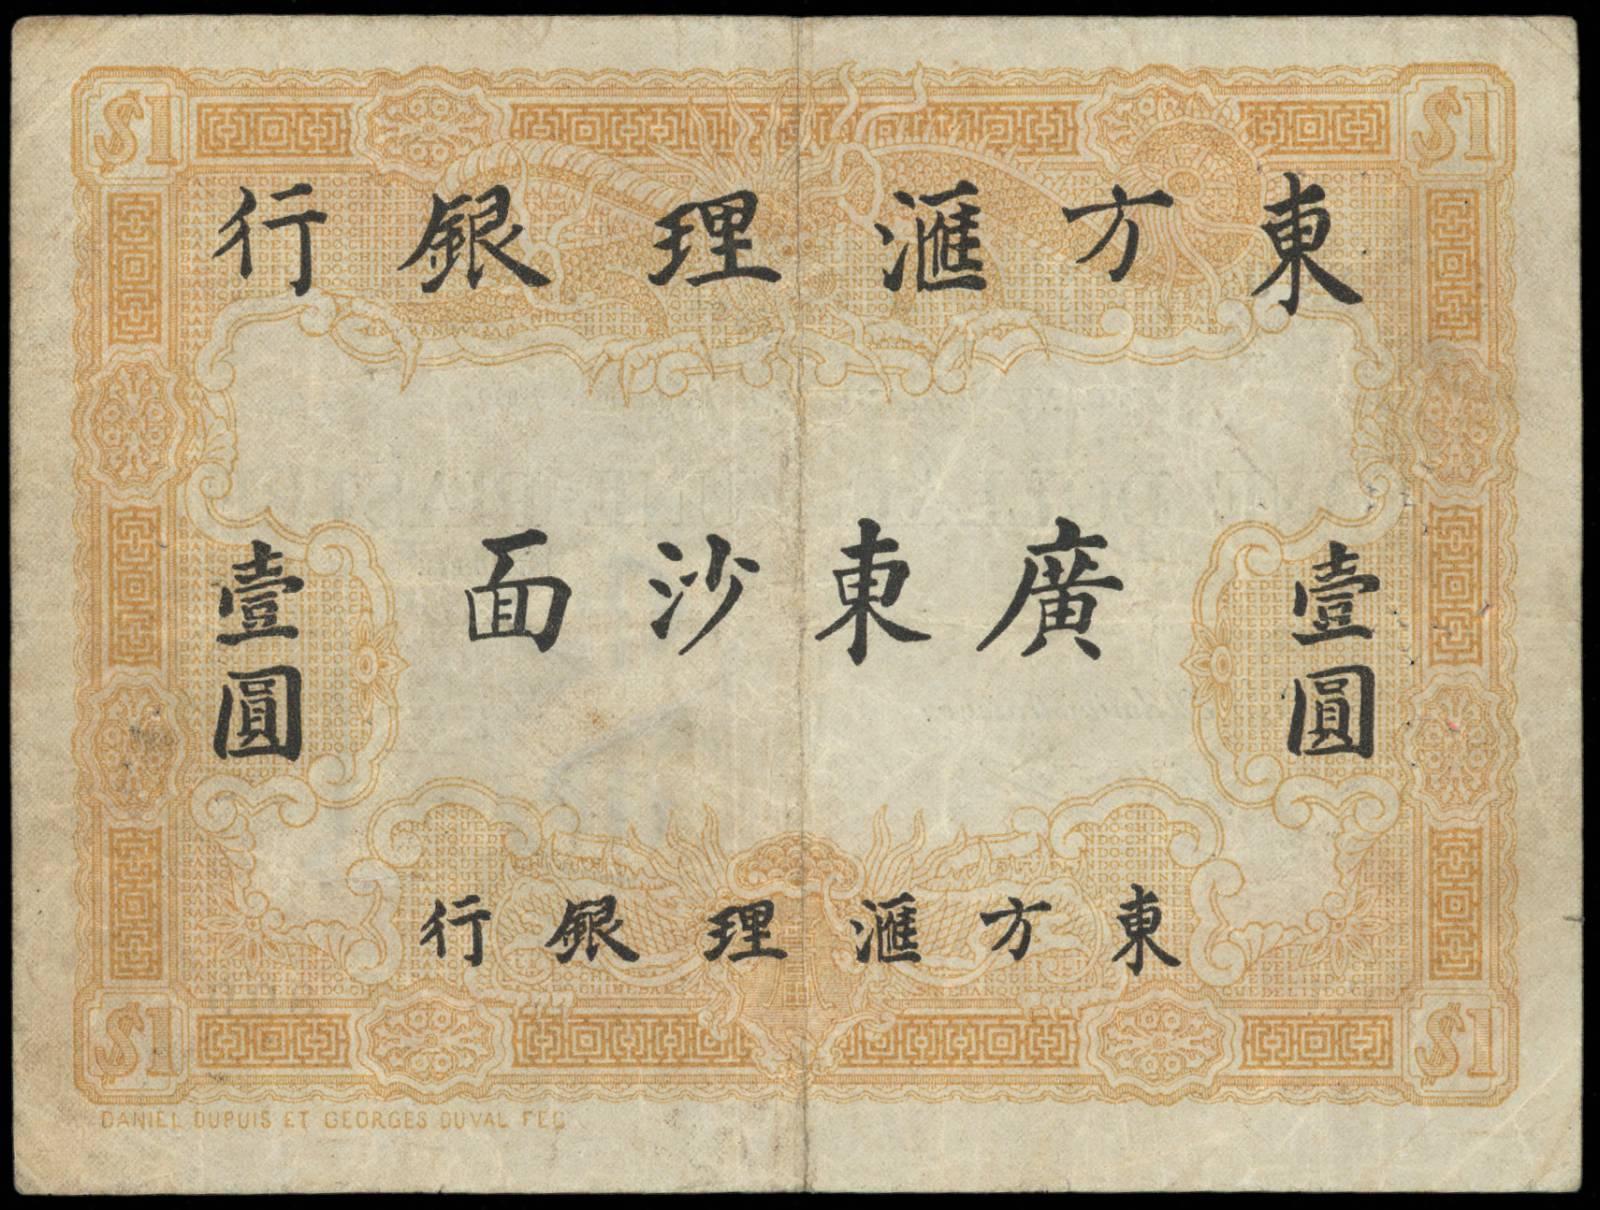 $1 $1
東方滙理銀行
廣東沙面
壹圓 壹圓
東方滙理銀行
$1 $1
DANIEL DUPUIS ET GEORGES DUVAL FEC